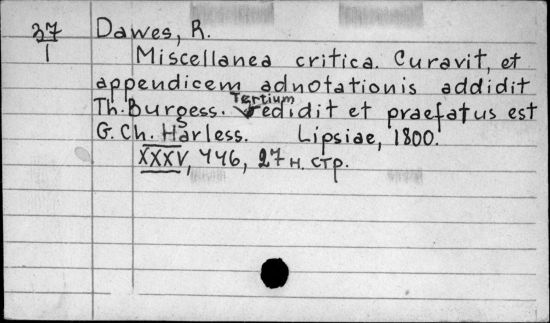 37
1
Dawes, R.
Miscellanea critica. Curavit, et
appendicem adnotationis addidit
Th. Burgess. Tertium edidit et praefatus est
G. Ch. Harless. Lipsiae, 1800.
XXXV, 446, 27 н. стр.